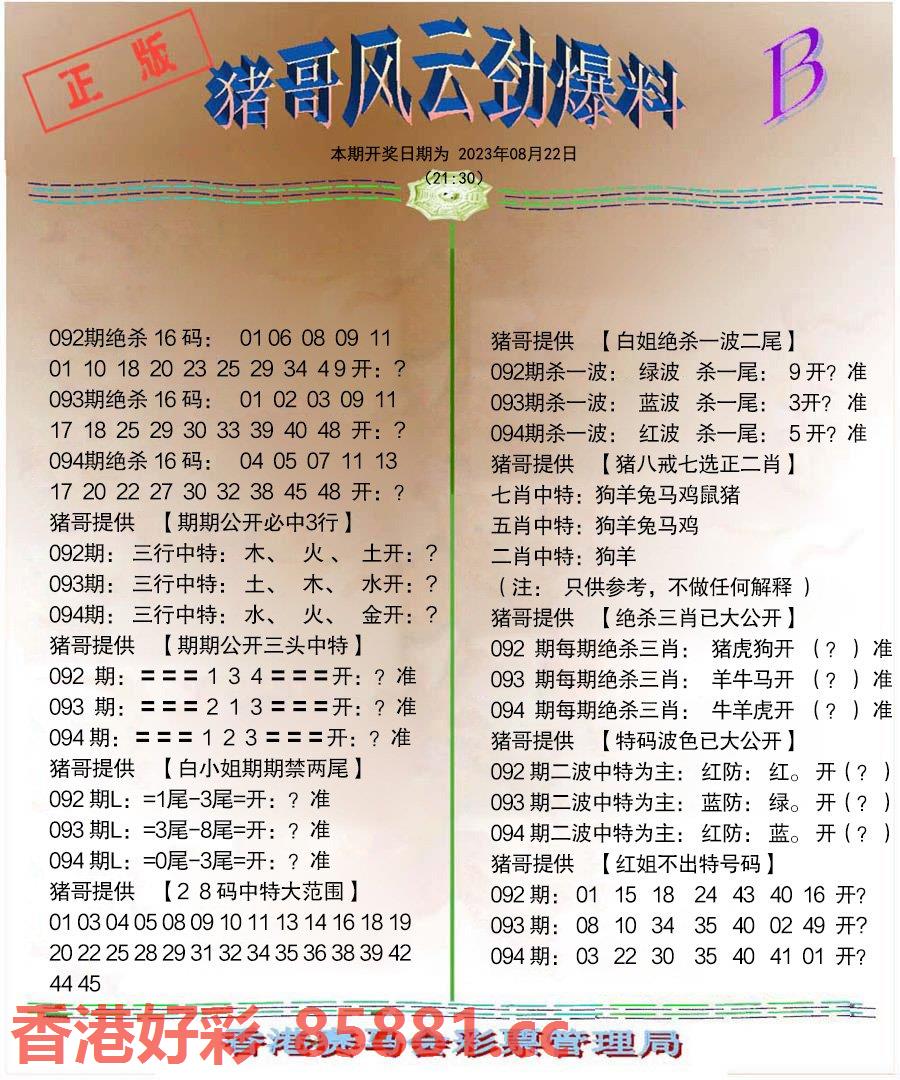 正版
猪哥风云劲爆料
B
本期开奖日期为 2023年08月22日
(21:30)
092期绝杀 16 码： 01 06 08 09 11
01 10 18 20 23 25 29 34 4 9 开：？
093期绝杀 16 码： 01 02 03 09 11
17 18 25 29 30 33 39 40 48 开：？
094期绝杀 16 码： 04 05 07 11 13
17 20 22 27 30 32 38 45 48 开：？
猪哥提供 【期期公开必中3行】
092期： 三行中特： 木、 火 、 土开：？
093期： 三行中特： 土、 木、 水开：？
094期： 三行中特： 水、 火、 金开：？
猪哥提供 【期期公开三头中特】
092 期：＝＝＝１３４＝＝＝开：？准
093 期：＝＝＝２１３＝＝＝开：？准
094 期：＝＝＝１２３＝＝＝开：？准
猪哥提供 【白小姐期期禁两尾】
092 期L：=1尾-3尾=开：？准
093 期L：=3尾-8尾=开：？准
094 期L：=0尾-3尾=开：？准
猪哥提供 【２８码中特大范围】
01 03 04 05 08 09 10 11 13 14 16 18 19
20 22 25 28 29 31 32 34 35 36 38 39 42
44 45
猪哥提供 【白姐绝杀一波二尾】
092期杀一波： 绿波 杀一尾： 9 开？准
093期杀一波： 蓝波 杀一尾： 3开？准
094期杀一波： 红波 杀一尾： 5 开？准
猪哥提供 【猪八戒七选正二肖】
七肖中特：狗羊兔马鸡鼠猪
五肖中特：狗羊兔马鸡
二肖中特：狗羊
（注： 只供参考，不做任何解释 ）
猪哥提供 【绝杀三肖已大公开】
092 期每期绝杀三肖： 猪虎狗开 （？）准
093 期每期绝杀三肖： 羊牛马开 （？）准
094 期每期绝杀三肖： 牛羊虎开 （？）准
猪哥提供 【特码波色已大公开】
092 期二波中特为主：红防：红。开（？）
093 期二波中特为主：蓝防：绿。开（？）
094 期二波中特为主：红防：蓝。开（？）
猪哥提供 【红姐不出特号码】
092 期： 01 15 18 24 43 40 16 开？
093 期： 08 10 34 35 40 02 49 开？
094 期： 03 22 30 35 40 41 01 开？
香港好彩 85881.cc
香港赛马会彩票管理局